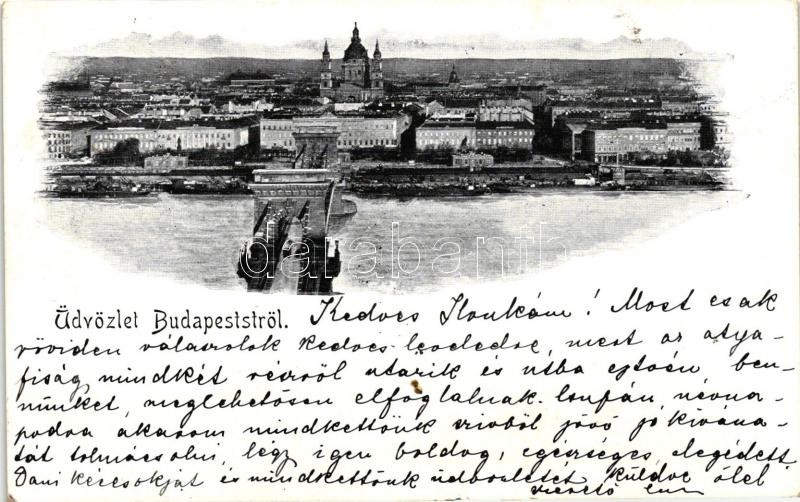 darabanth
Üdvözlet Budapestről.
Kedves Ilonkám! Most csak
röviden válaszolok kedves leveledre, mert az atya-
fiság mindkét részről utazik és útba ejtvén, ben-
nünket, meglehetősen elfoglalnak. Csupán névna-
podra akarom mindkettőnk szivből jövő jó kivána-
tát tolmácsolni, légy igen boldog, egészséges, elegédett
kézcsókját és mindkettőnk üdvözletét küldve ölel
szerető